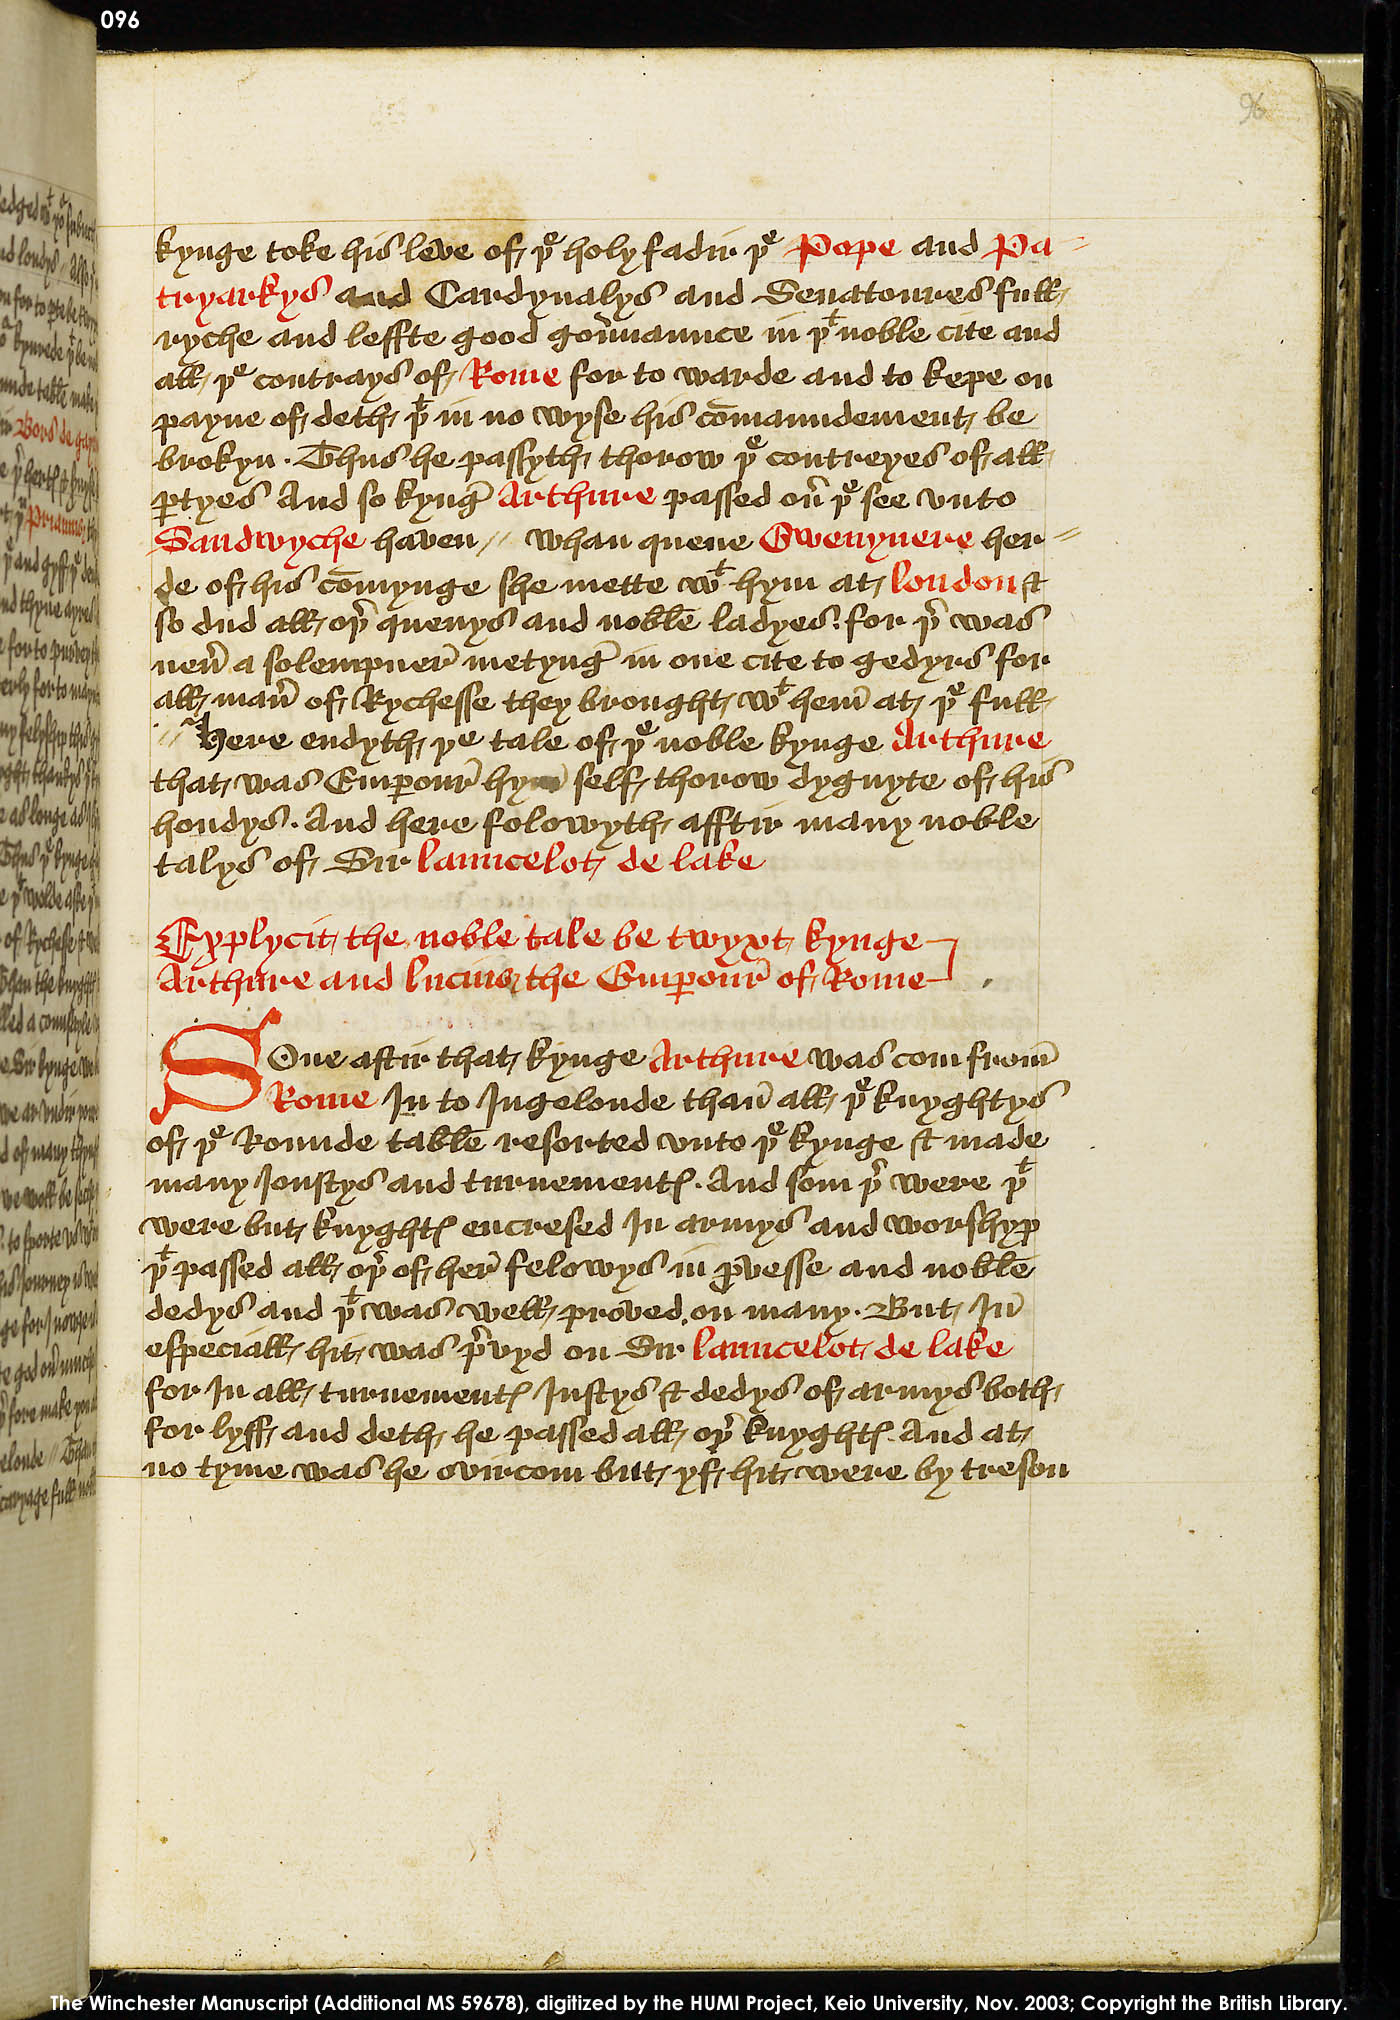 096
96
kynge toke his leve of þe holy fadir þe Pope and Pa=
tryarkys and Cardynalys and Senatoures full
ryche and leffte good gou̅naunce in þt noble cite and
all þe contrays of Rome for to warde and to kepe on
payne of deth þt in no wyse his co̅maundement be
brokyn . Thus he passyth thorow þe contreyes of all
ꝑtyes And so kynge̅ Arthure passed ou̅ þe see vnto
Sandwyche haven // whan quene Gwenyvere her=
de of his co̅mynge she mette wt hym at london &
so dud all oþr quenys and noble ladyes . for þr was
neu̅ a solempner̅ metyng̅ in one cite to gedyrs for
all man̅ of Rychesse they brought wt hem̅ at þe full
// Here endyth þe tale of þe noble kynge Arthure
that was Emꝑour̅ hym self thorow dygnyte of his
hondys . And here folowyth afftir many noble
talys of Sir launcelot de lake
Explycit the noble tale be twyxt kynge
Arthure and lucius the Emꝑour̅ of Rome
SOne aftir that kynge Arthure was com from̅
Rome In to Ingelonde than̅ all þe knyghtys
of þe Rounde table resorted vnto þe kynge & made
many Joustys and turnementꝭ . And som̅ þr were þt
were but knyghtꝭ encresed In armys and worshyp
þt passed all oþr of her̅ felowys in ꝓvesse and noble
dedys and þt was well proved on many . But In̅
especiall hit was prvyd on Sir launcelot de lake
for In all turnementꝭ Justys & dedys of armys both
for lyff and deth he passed all oþr knyghtꝭ . And at
no tyme was he ovircom but yf hit were by treson
The Winchester Manuscript (Additional MS 59678), digitized by the HUMI Project, Keio University, Nov. 2003; Copyright the British Library.